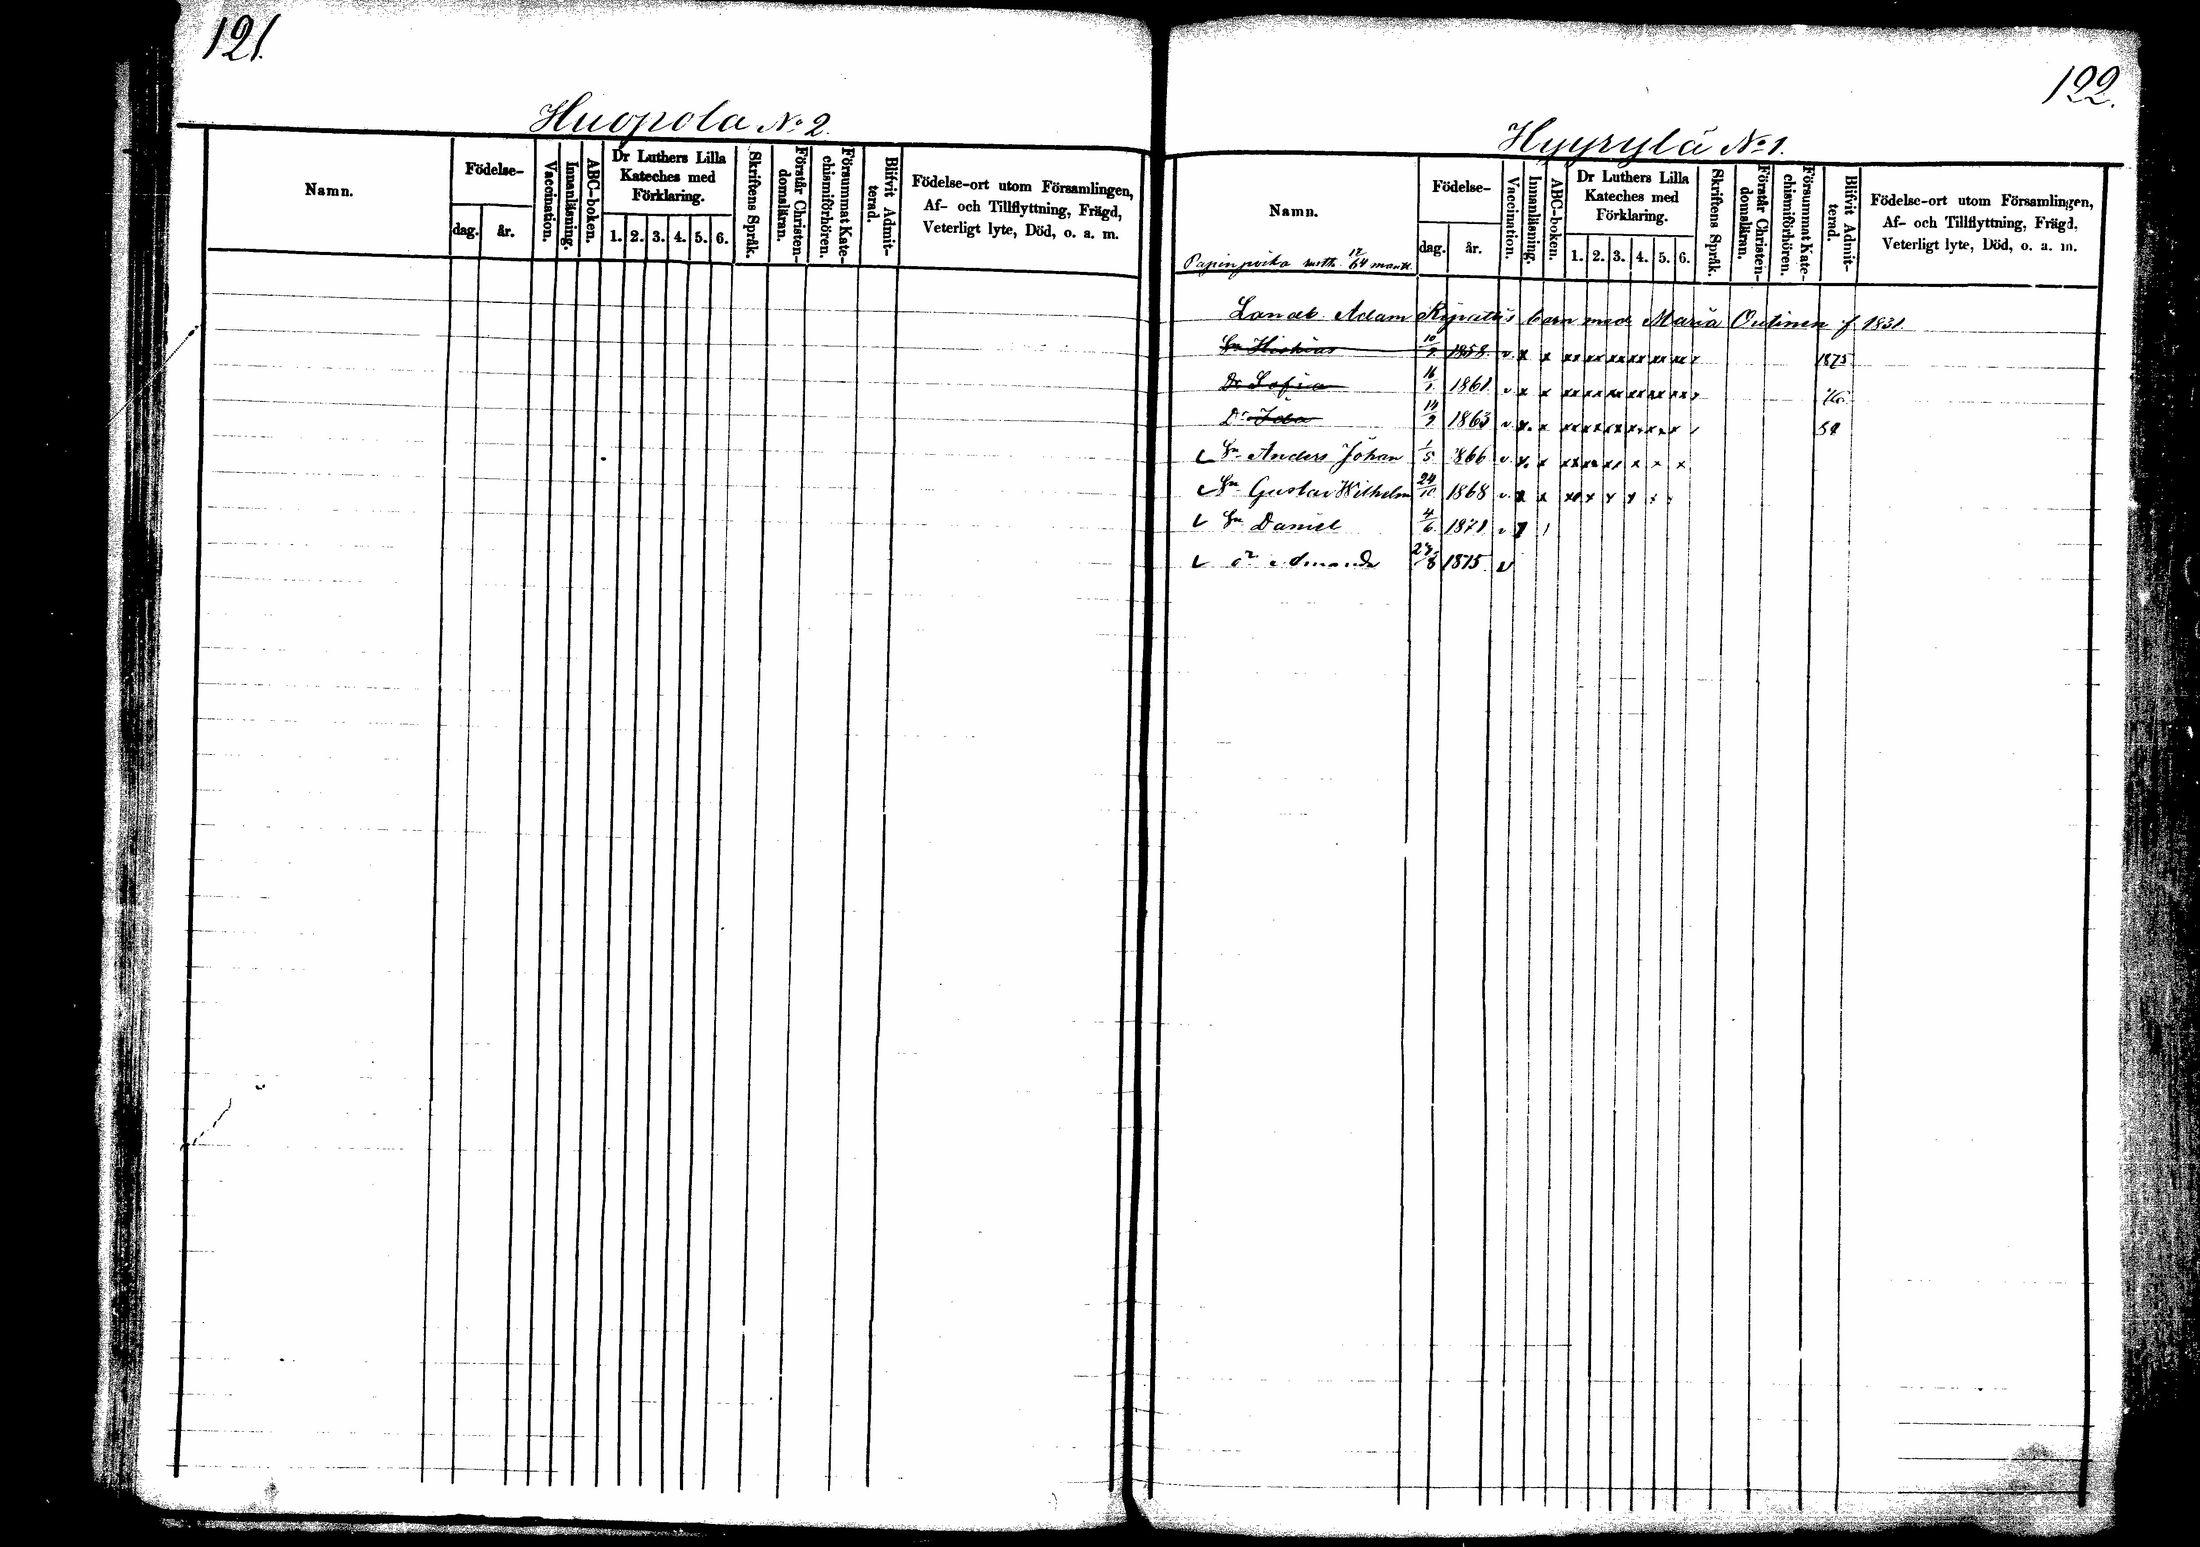 121.
Huopola No 2.
Namn.
Födelse-
dag. år.
Vaccination.
Innanläsning.
ABC-boken.
Dr Luthers Lilla
Kateches med
Förklaring.
1. 2. 3. 4. 5. 6.
Skriftens Språk.
Förstår Christen-
domsläran.
Försummat Kate-
chismiförhören.
Blifvit Admit-
terad.
Födelse-ort utom Församlingen,
Af- och Tillflyttning, Frägd,
Veterligt lyte, Död, o. a. m.
122.
Hyyrylä No 1.
Namn.
12/64 mantl.
Födelse-
dag. år.
Vaccination.
Innanläsning.
ABC-boken.
Dr Luthers Lilla
Kateches med
Förklaring.
1. 2. 3. 4. 5. 6.
Skriftens Språk.
Förstår Christen-
domsläran.
Försummat Kate-
chismiförhören.
Blifvit Admit-
terad.
Födelse-ort utom Församlingen,
Af- och Tillflyttning, Frägd,
Veterligt lyte, Död, o. a. m.
Landb. Adam barn med Maria Outinen f 1831
Sn 10/9 1858 v x x xx xx xx xx xx xx 1875
Dr Sofia 16/1 1861 v x x xx xx xx xx xx xx
Dr Ida 14/9 1863 v x x xx xx xx
Sn Anders Johan 1/5 1866 v x x xx xx xx x x x
Sn Gustav Wilhelm 24/10 1868 v x x
Sn Daniel 4/6 1871 v
Dr Amanda 1875 v